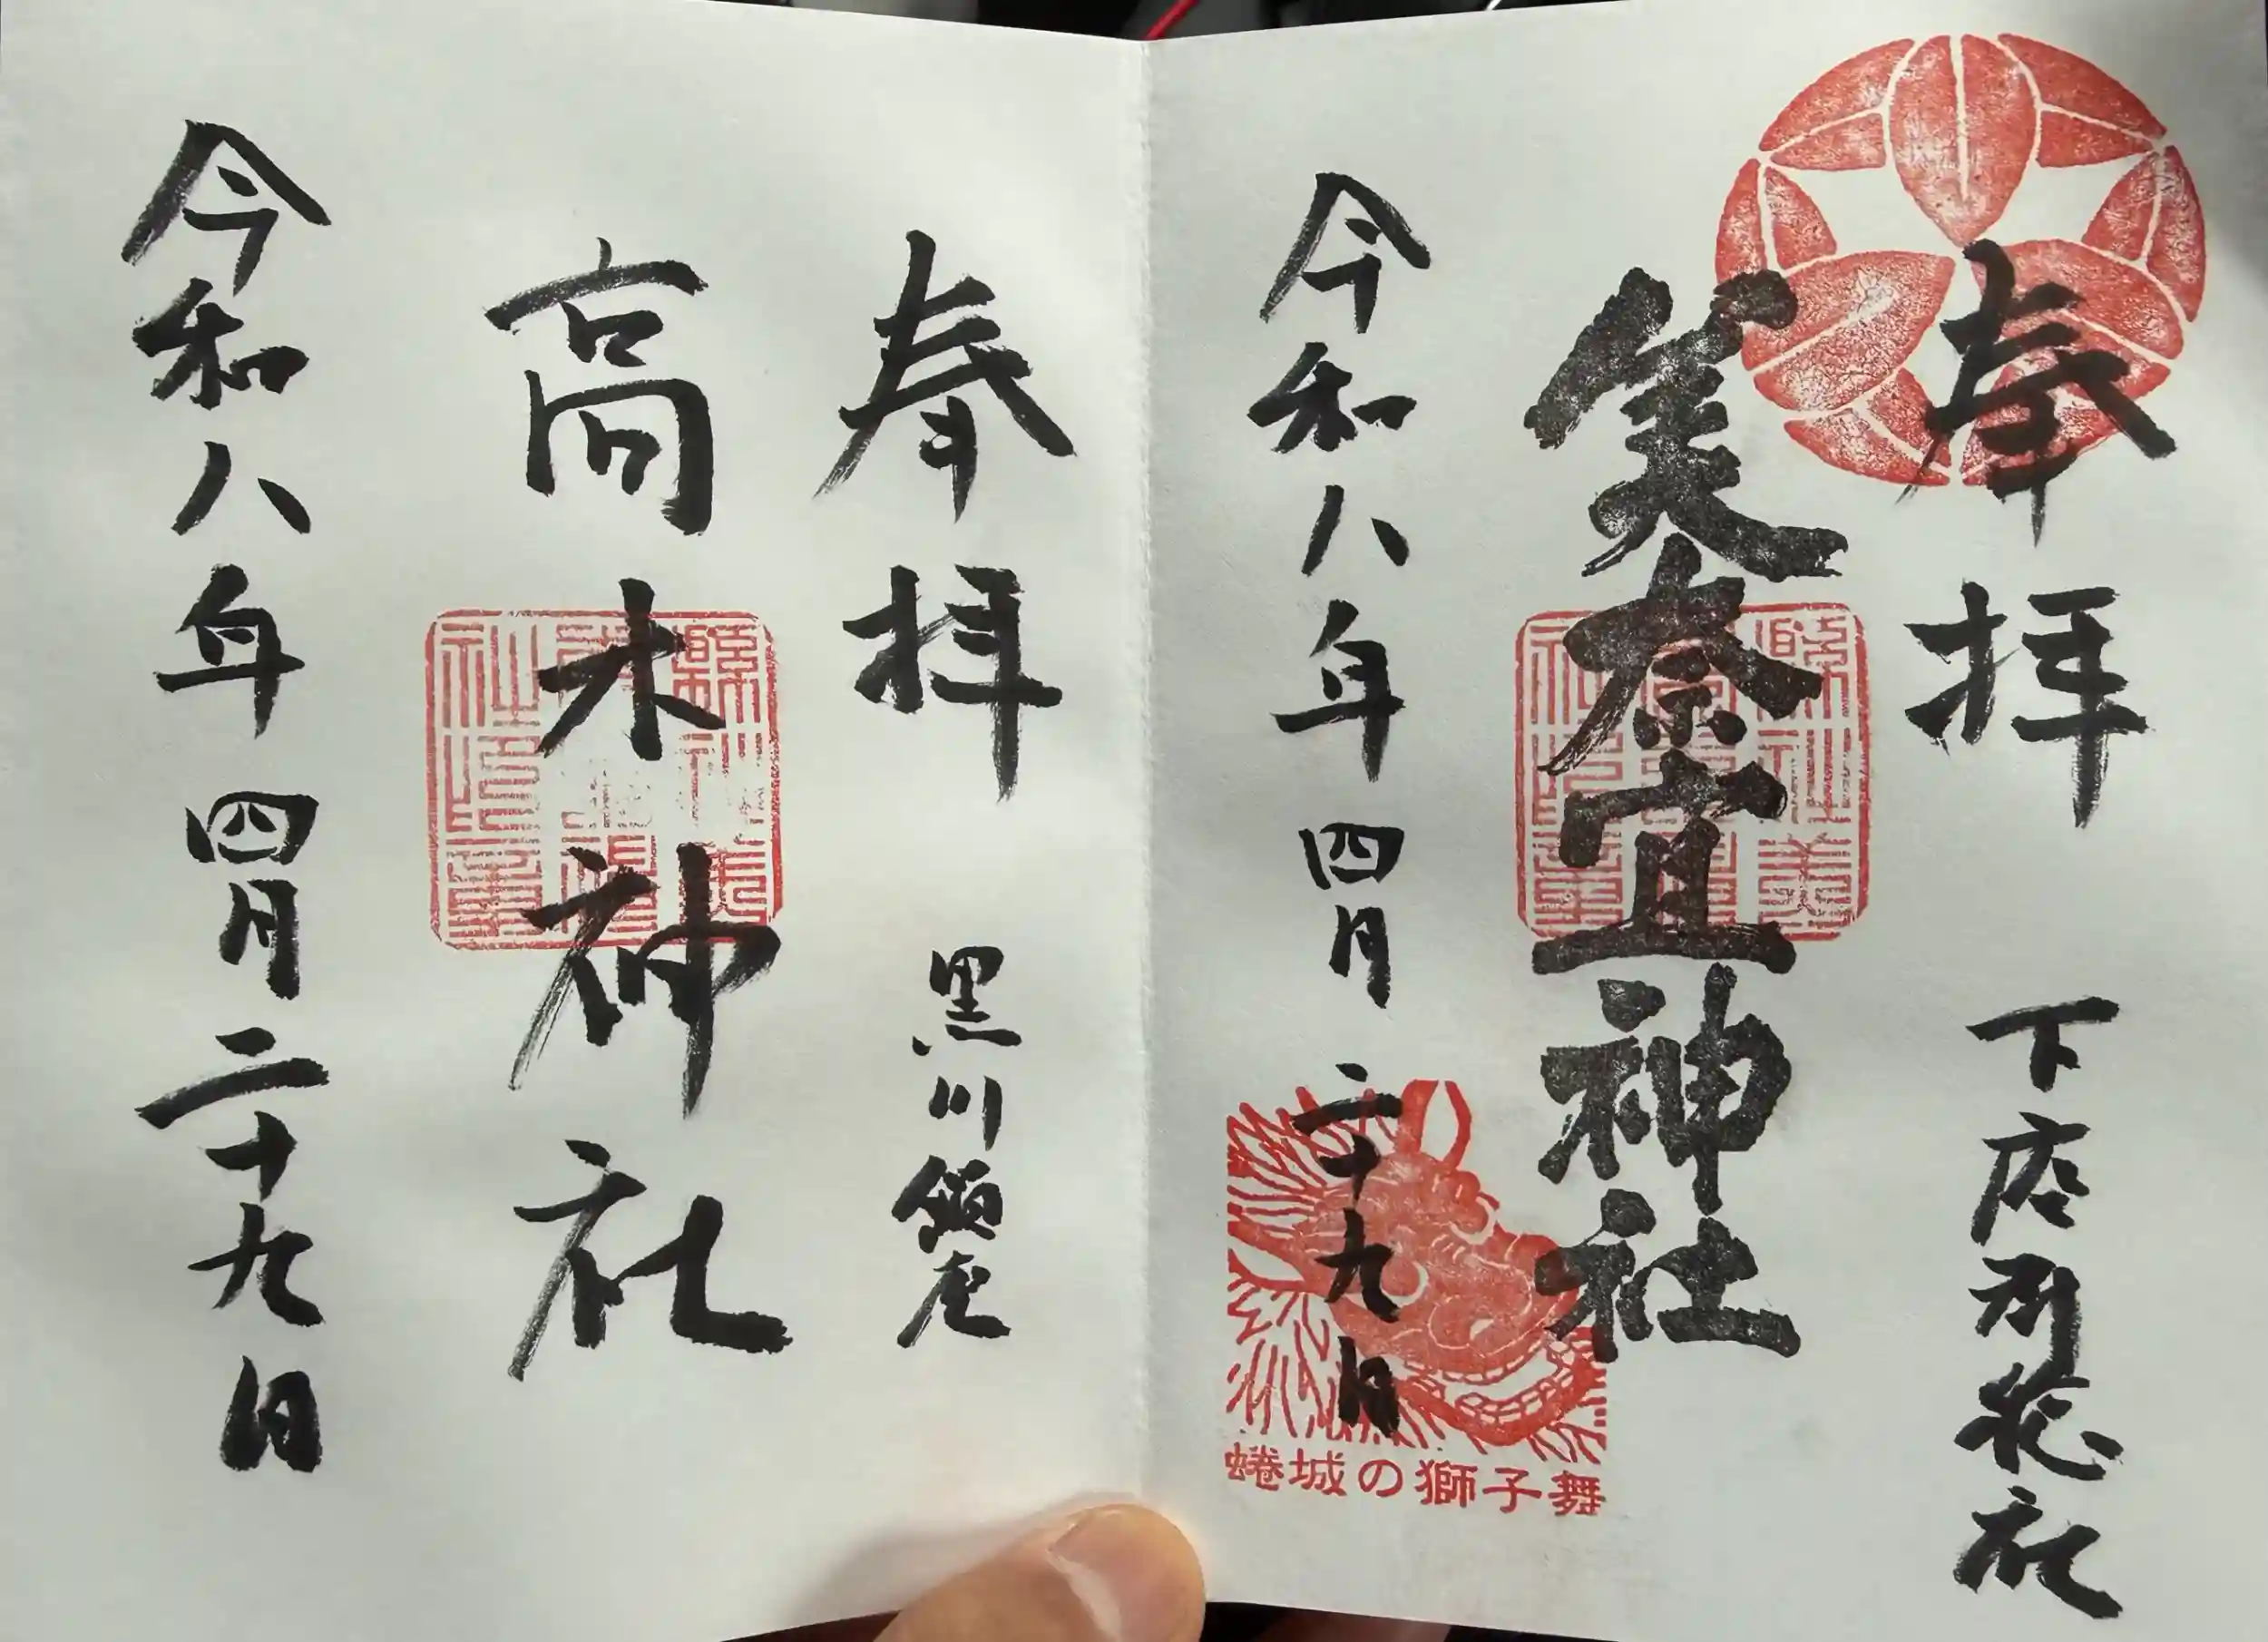 奉拝 下座郡惣社
美奈宜神社
令和八年四月二十九日
蜷城の獅子舞
奉拝 黒川鎮座
高木神社
令和八年四月二十九日